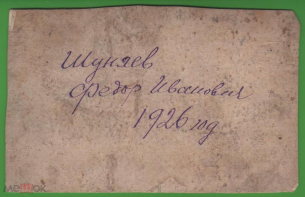 Шуняев
Федор Иванович
1926 год